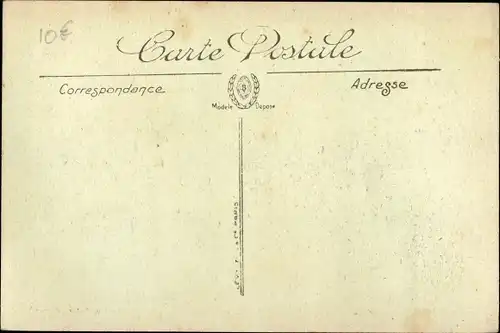 10€
Carte Postale
Correspondance
Adresse
Modèle Déposé
PARIS